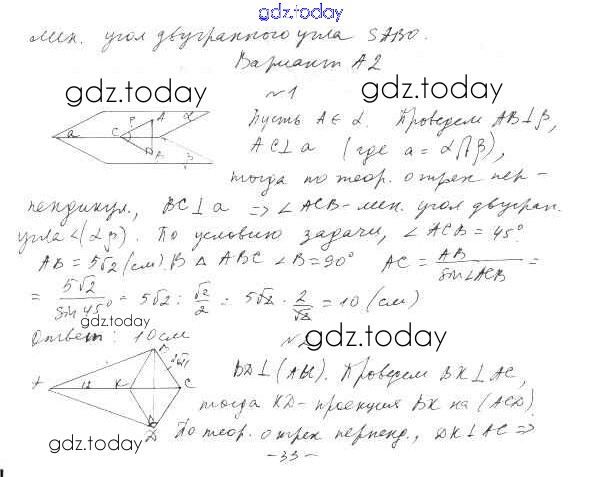 gdz.today
лин. угол двугранного угла SABO.
Вариант А2
gdz.today gdz.today
№1
Пусть A ∈ α. Проведем AB ⊥ β,
AC ⊥ a (где a = α ∩ β),
тогда по теор. о трех пер-
пендикул., BC ⊥ a => ∠ACB - лин. угол двугран.
угла ∠(αβ). По условию задачи, ∠ACB = 45°
AB = 5√2 (см). В △ ABC ∠B = 90° AC = AB / sin∠ACB =
= 5√2 / sin 45° = 5√2 : √2/2 = 5√2 · 2/√2 = 10 (см)
gdz.today
Ответ: 10 см
№2 gdz.today
BD ⊥ (ABC). Проведем BK ⊥ AC,
тогда KD - проекция BK на (ACD).
По теор. о трех перпенд., DK ⊥ AC =>
gdz.today
-33-